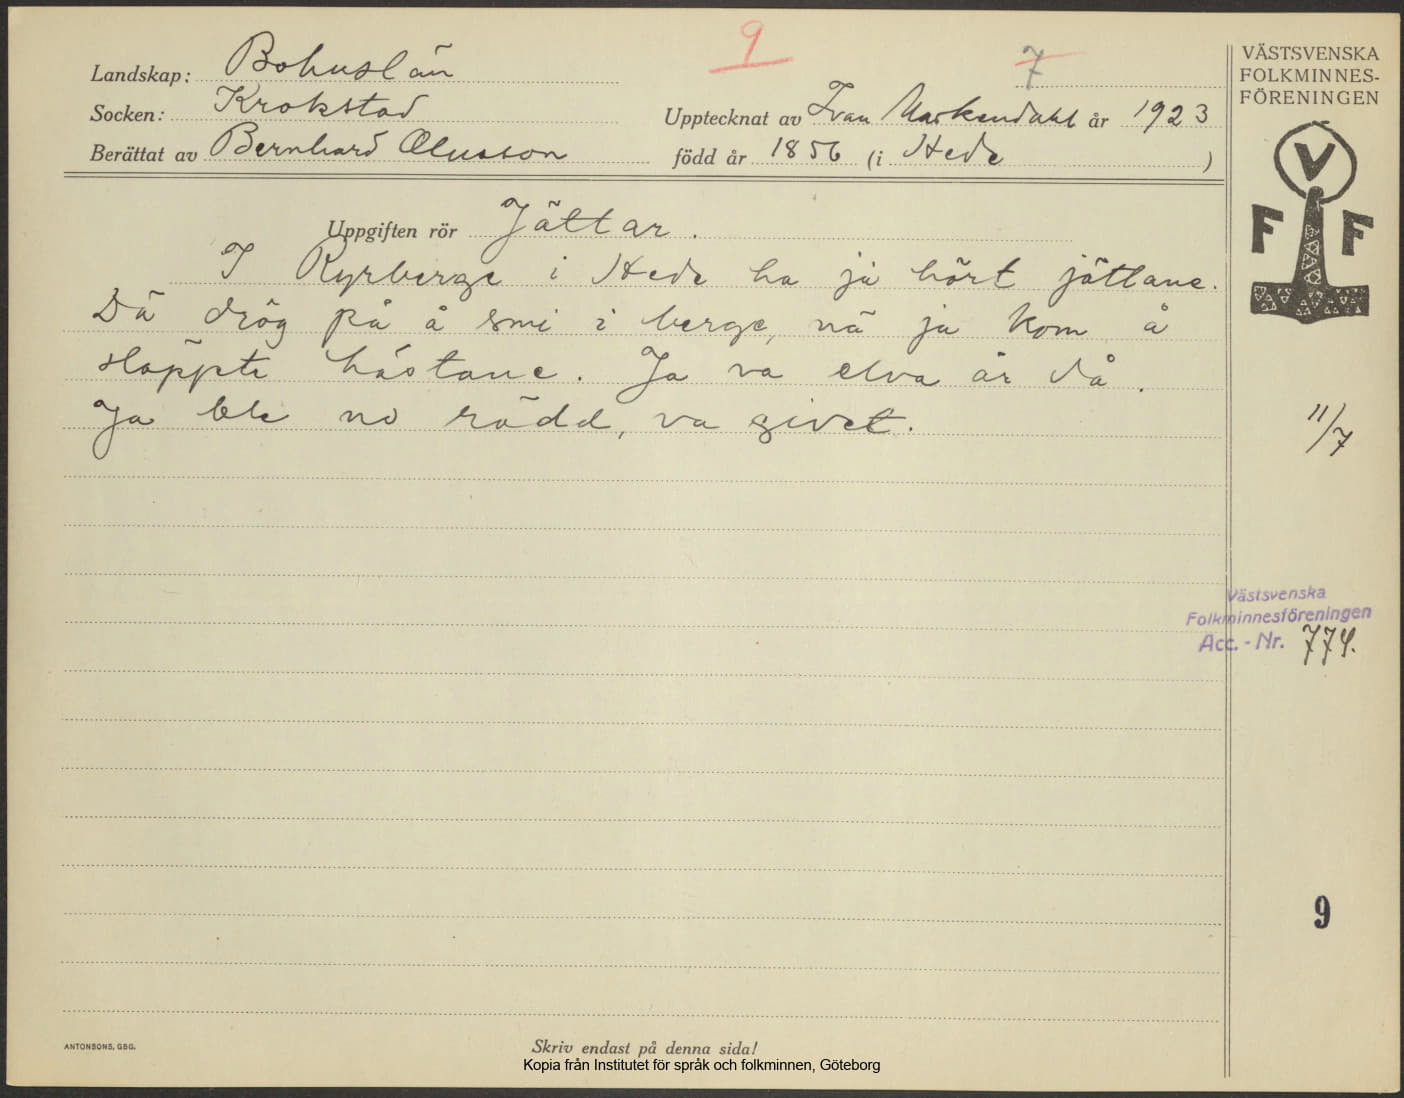 9
7
Landskap: Bohuslän
Socken: Krokstad
Upptecknat av Ivan Markendahl år 1923
Berättat av Bernhard Olusson
född år 1856 (i Hede )
VÄSTSVENSKA
FOLKMINNES-
FÖRENINGEN
V
F F
Uppgiften rör Jättar.
I Ryrberge i Hede ha ja hört jättane.
Dä drög på å smi i berge, nä ja kom å
släppte hästane. Ja va elva år då.
Ja ble no rädd, va givet.
11/7
Västsvenska
Folkminnesföreningen
Acc. - Nr. 774.
9
ANTONSONS, GBG.
Skriv endast på denna sida!
Kopia från Institutet för språk och folkminnen, Göteborg